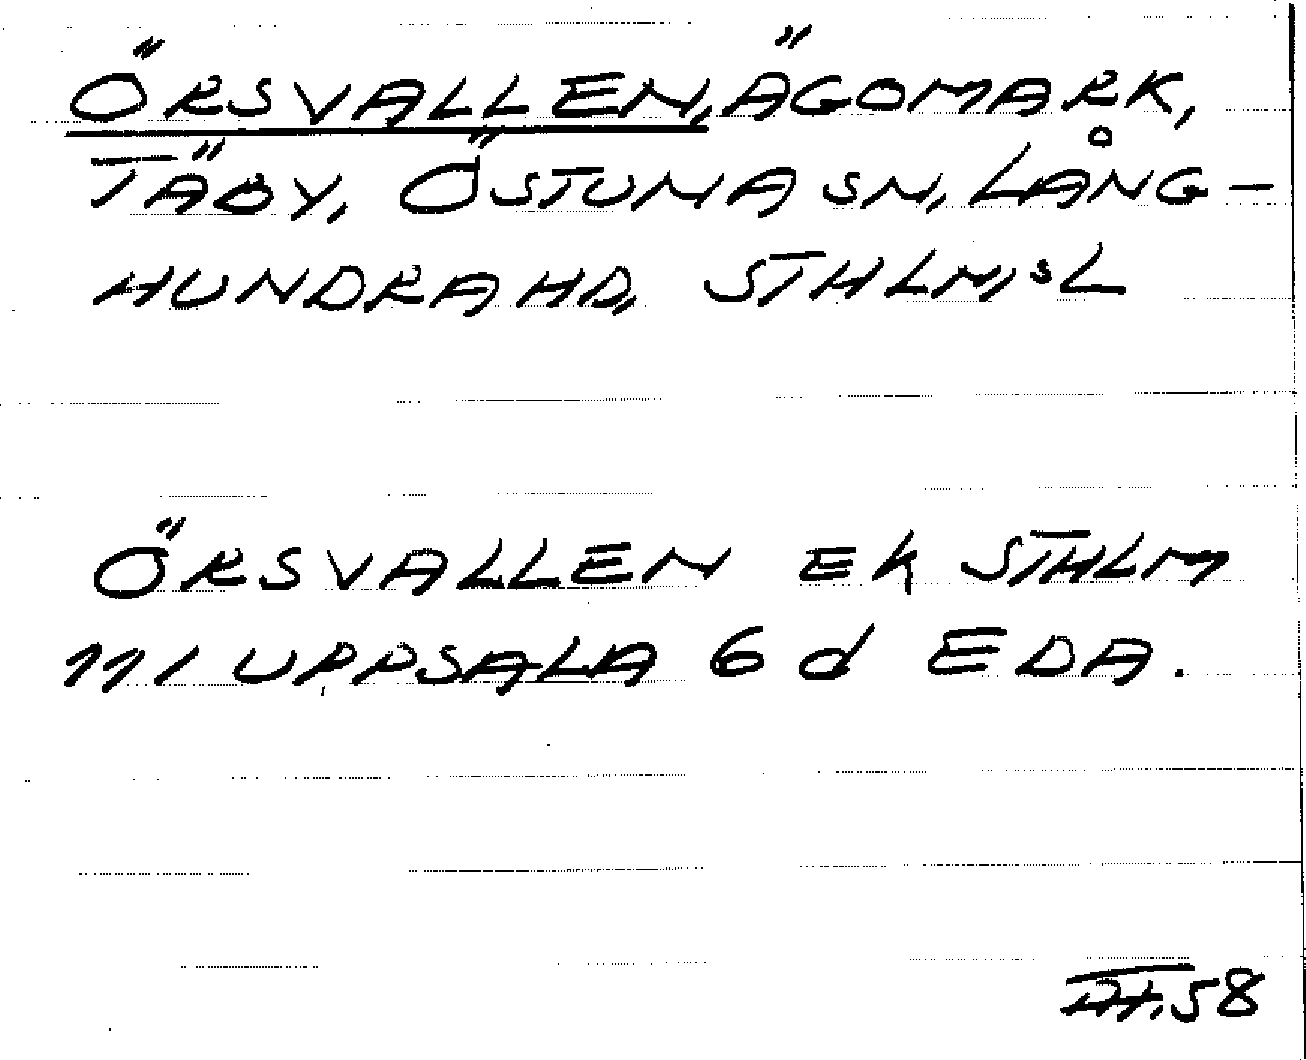 ÖRSVALLEN, ÄGOMARK,
TÄBY, ÖSTUNA SN, LÅNG-
HUNDRA HD, STHLM,S L
ÖRSVALLEN EK STHLM
111 UPPSALA 6 d EDA.
58